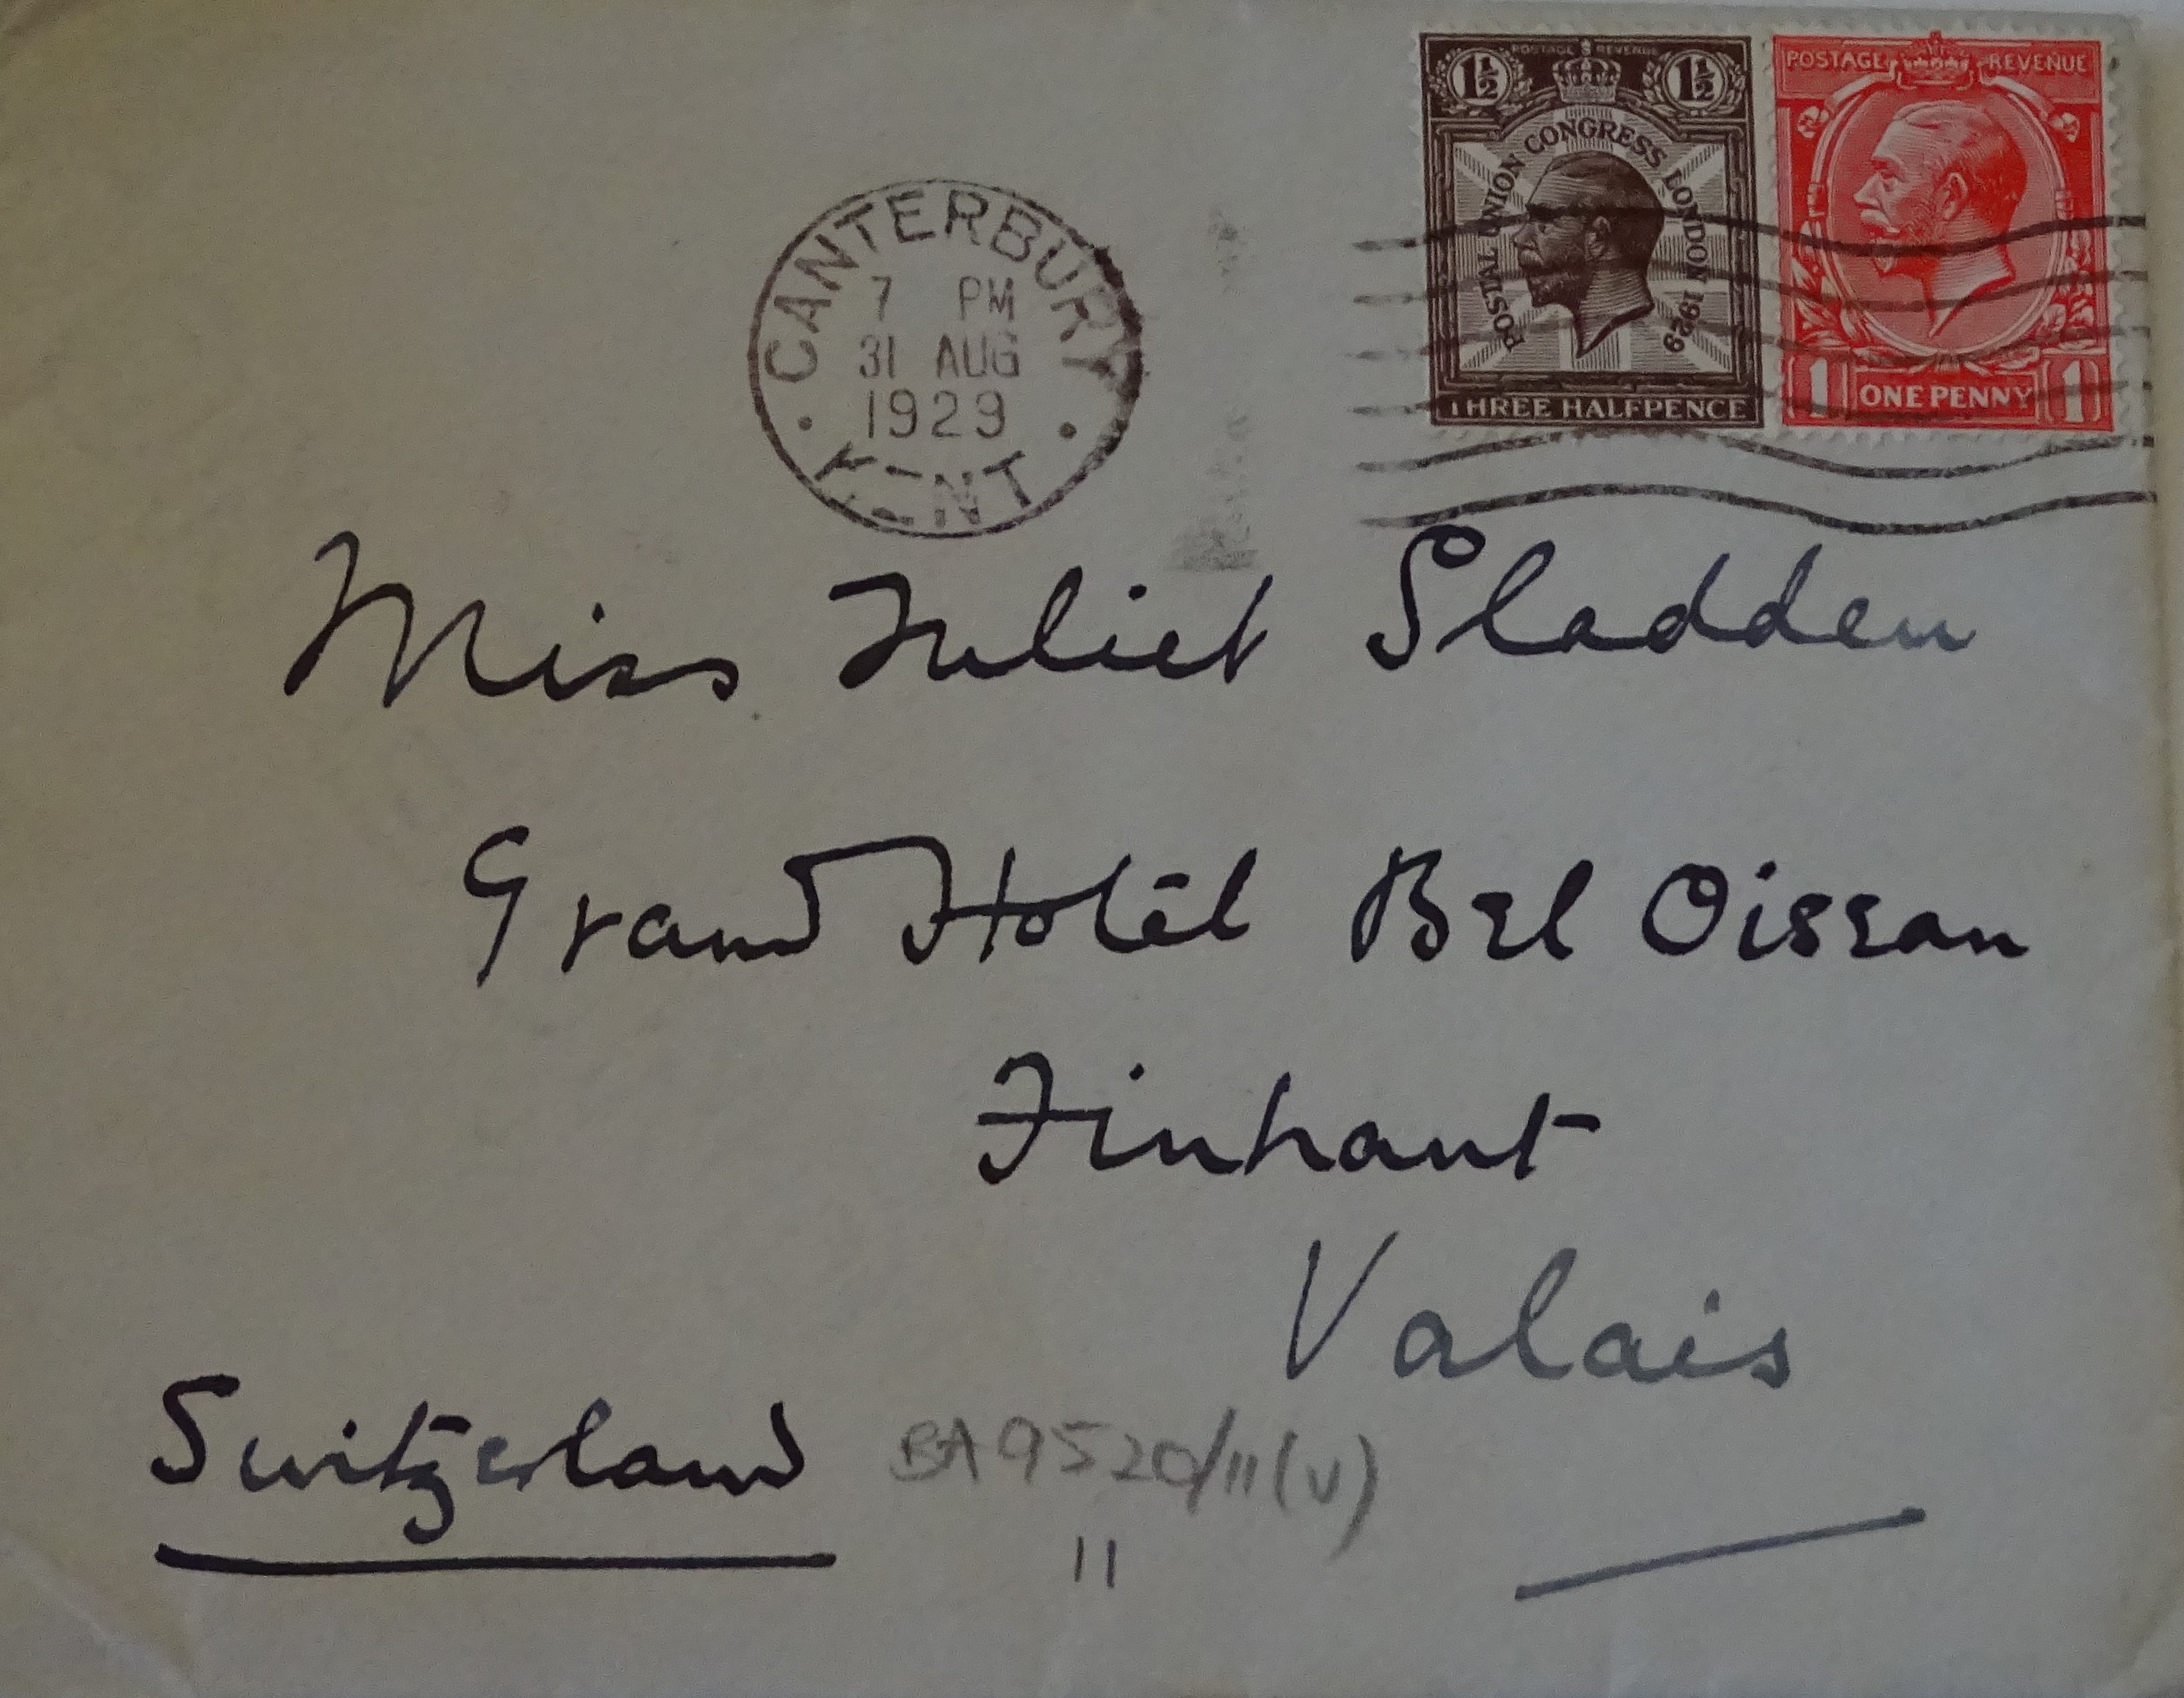 POSTAGE REVENUE
1½ 1½
POSTAL UNION CONGRESS LONDON 1929
THREE HALFPENCE
POSTAGE REVENUE
1 ONE PENNY 1
CANTERBURY
7 PM
31 AUG
1929
KENT
Miss Juliet Sladden
Grand Hotel Bel Oiseau
Finhaut
Valais
Switzerland
BA9520/11(V)
11